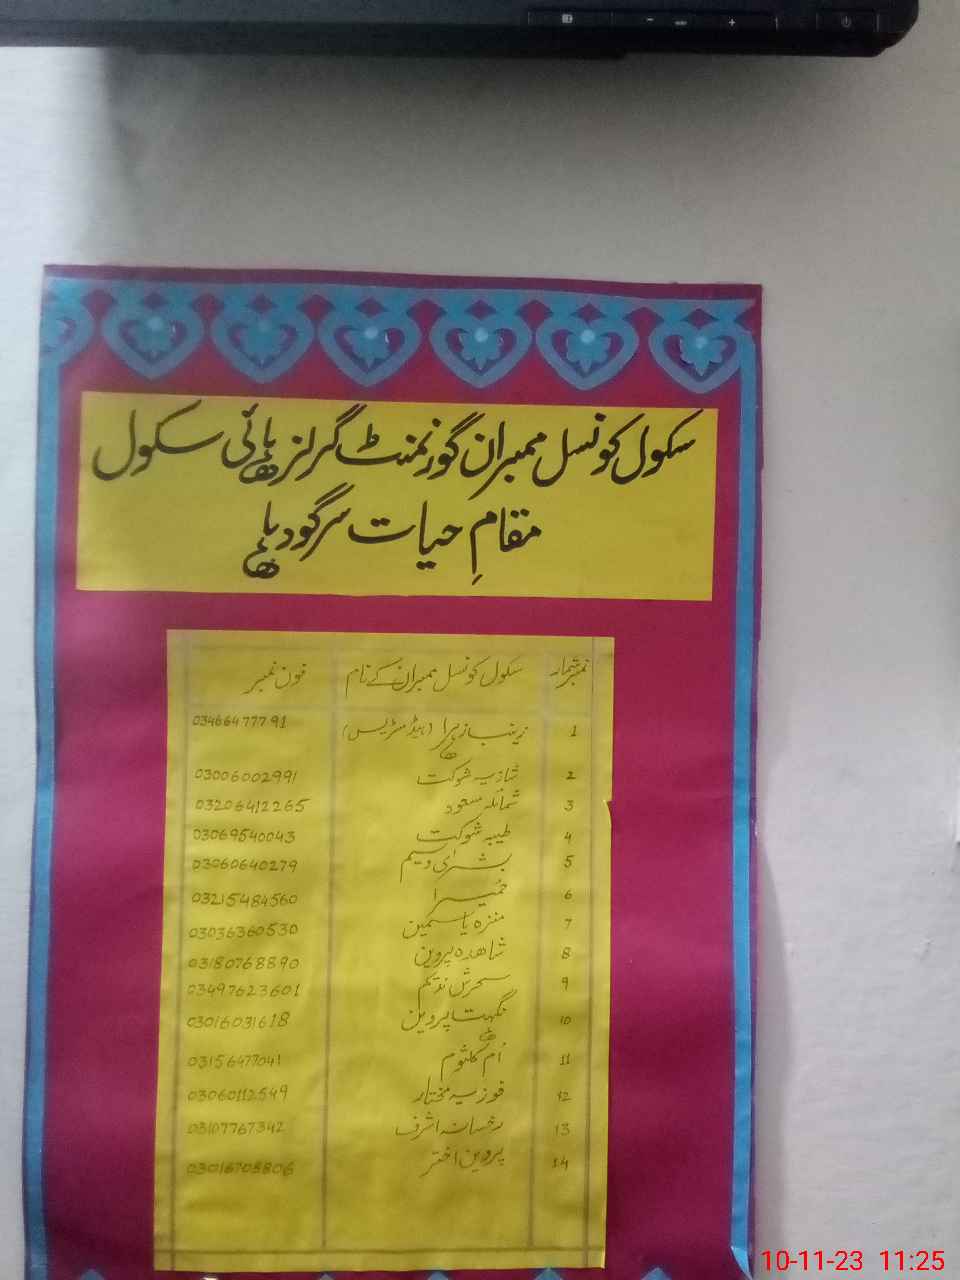 سکول کونسل ممبران گورنمنٹ گرلز ہائی سکول
مقامِ حیات سرگودہا
نمبر شمار سکول کونسل ممبران کے نام فون نمبر
1 زینب زہرا (ہیڈمسٹریس) 03466477791
2 شازیہ شوکت 03006002991
3 شمائلہ سعود 03206412265
4 طیبہ شوکت 03069540043
5 بشریٰ وسیم 03060640279
6 حمیرا 03215484560
7 منزہ یاسمین 03036360530
8 شاھدہ پروین 03180768890
9 سحرش ندیم 03497623601
10 نگہت پروین 03016031618
11 اُم کلثوم 03156477041
12 فوزیہ مختار 03060112549
13 رخسانہ اشرف 03107767342
14 پروین اختر 03016708806
10-11-23 11:25